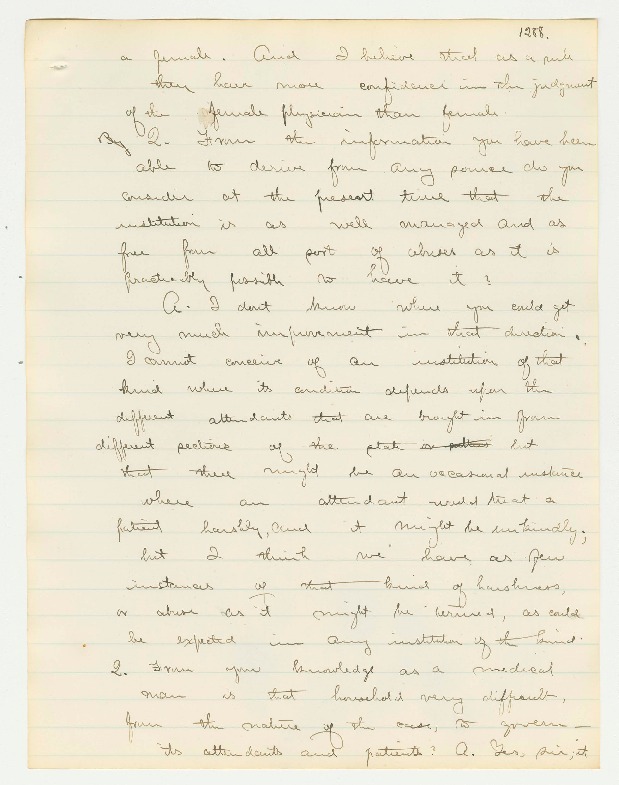 1288.
a female. And I believe that as a rule
they have more confidence in the judgment
of the female physician than female.
By Q. From the information you have been
able to derive from any source do you
consider at the present time that the
institution is as well managed and as
free from all sort of abuses as it is
practicably possible to have it?
A. I don't know where you could get
very much improvement in that direction.
I cannot conceive of an institution of that
kind where its condition depends upon the
different attendants that are brought in from
different sections of the state but
that there might be an occasional instance
where an attendant would treat a
patient harshly, and it might be unkindly;
but I think we have as few
instances of that kind of harshness,
or abuse as it might be termed, as could
be expected in any institution of the kind.
Q. From your knowledge as a medical
man is that household very difficult,
from the nature of the case, to govern—
its attendants and patients? A. Yes, sir, it